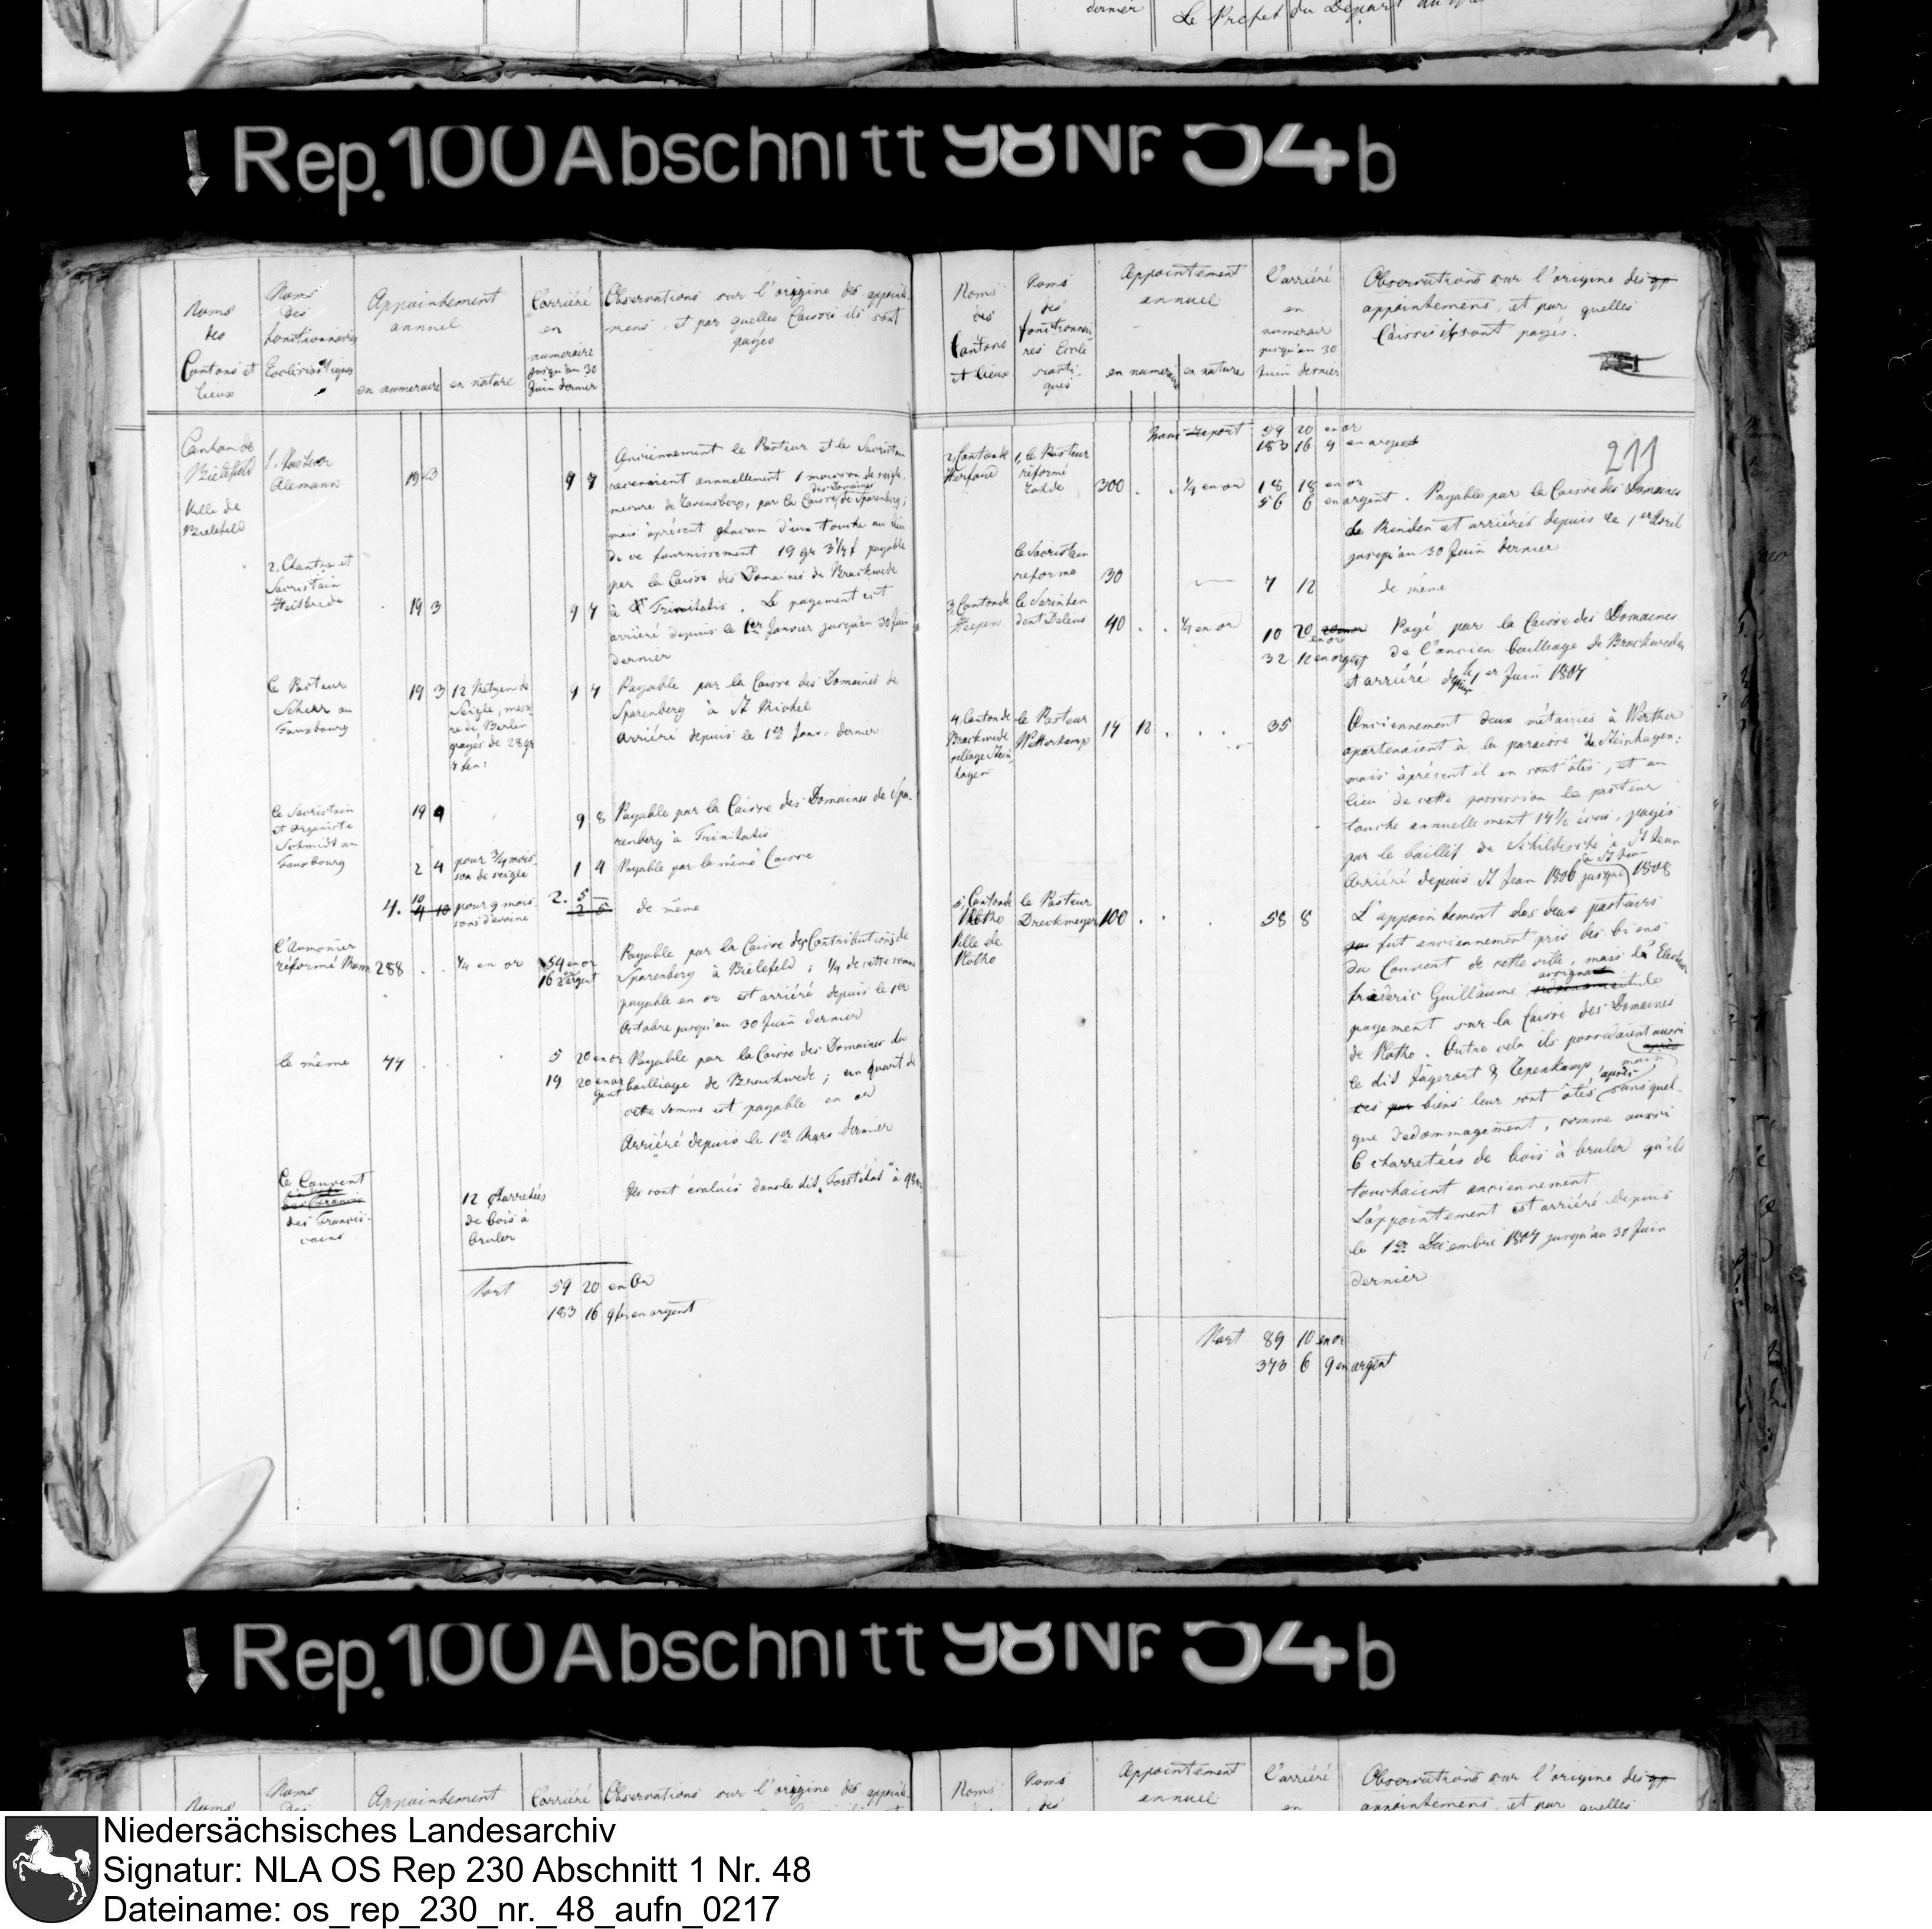 dernier Le Préfet du Départ
Rep. 100 Abschnitt 98 Nr. 54 b
Noms
des
Cantons et
lieux
Noms
des
fonctionnaires
Ecclésiastiques
Appointement
annuel
en numeraire en nature
L'arriéré
en
numeraire
jusqu'au 30
Juin dernier
Observations sur l'origine des appointe-
mens, et par quelles Caisses ils sont
payés
Canton de
Bielefeld
Ville de
Bielefeld
1. Pasteur
Alemann
19 3
9 7
Anciennement le Pasteur et le Sacristain
recevoient annuellement 1 moisson de seigle
mesure de Ravensberg, par la Caisse des Domaines de Sparenberg;
mais àprésent chacun d'eux touche au lieu
de ce fournissement 19 gr 3½ f payable
par la Caisse des Domaines de Brackwede
à Trinitatis. Le payement est
arriéré depuis le 1er Janvier jusqu'au 30 Juin
dernier
2. Chantre et
Sacristain
19 3
9 7
Le Pasteur
Scherr au
Fauxbourg
19 3
12 Metzen de
Seigle, mesu-
re de Berlin
payés de 28 gr
9 7
Payable par la Caisse des Domaines de
Sparenberg à St Michel
arriéré depuis le 1er Janv. dernier
le Sacristain
et organiste
Schmidt au
Fauxbourg
19 4
9 8
Payable par la Caisse des Domaines de Spa-
renberg à Trinitatis
2 4
pour 3/4 mois-
son de seigle
1 4
Payable par la même Caisse
4. 10
4 10
pour 9 mois-
sons d'avoine
2. 5 —
2 5
de même
l'Aumonier
réformé
288 . .
¼ en or
54 en or
16 en argent
Payable par la Caisse des Contributions de
Sparenberg à Bielefeld; ¼ de cette somme
payable en or est arriéré depuis le 1er
Octobre jusqu'au 30 Juin dernier
le même
77
5 20 en or
19 20 en ar
gent
Payable par la Caisse des Domaines du
bailliage de Brackwede; un quart de
cette somme est payable en or
Arriéré depuis le 1er Mars dernier
Le Couvent
des Francis-
cains
12 charretées
de bois à
bruler
Ils sont évalués dans le dit
59 20 en Or
183 16 9 en argent
Noms
des
Cantons
et lieux
Noms
des
fonctionnai-
res Eccle-
siasti-
ques
Appointement
annuel
en numeraire en nature
L'arriéré
en
numeraire
jusqu'au 30
Juin dernier
Observations sur l'origine des
appointemens, et par quelles
Caisses ils sont payes.
211
Trans-report 59 20 en or
183 16 9 en argent
2, Canton de
Herford
1, le Pasteur
réformé
300 . . ¼ en or
18 18 en or
56 6 en argent. Payable par la Caisse des Domaines
de Minden et arriérés depuis le 1er Avril
jusqu'au 30 Juin dernier
le Sacristain
reformé
30
7 12
de même
3, Canton de
Heepen
le Surinten
dent Delius
40 . . ¼ en or
10 20 en or
32 12 en argent
Payé par la Caisse des Domaines
de l'ancien bailliage de Brackwede
et arriéré depuis le 1er Juin 1807
4. Canton de
Brackwede
village Stein-
hagen
le Pasteur
14 12 . . .
35
Anciennement deux métairies à Werther
apartenaient à la paroisse de Steinhagen;
mais àprésent il en sont ôtés, et au
lieu de cette possession le pasteur
touche annuellement 14½ écus, payés
par le baillif de Schildesche à St Jean
Arriéré depuis St Jean 1806 jusqu' à St Jean 1808
5, Canton de
Vlotho
Ville de
Vlotho
le Pasteur
Dreckmeyer
100 . . .
58 8
L'appointement des deux pasteurs
fut anciennement pris des biens
du Couvent de cette ville, mais l'Electeur
fréderic Guillaume assignat le
payement sur la Caisse des Domaines
de Vlotho. Outre cela ils possedaient aussi
le dit Jägerort & Tepenkamp mais
biens leur sont ôtés sans quel-
que dedommagement, comme aussi
6 charretées de bois à bruler qu'ils
touchaient anciennement
L'appointement est arriéré depuis
le 1er Décembre 1807 jusqu'au 30 Juin
dernier
89 10 en or
373 6 9 en argent
Rep. 100 Abschnitt 98 Nr. 54 b
Noms
Noms
des
Appointement
L'arriéré
Observations sur l'origine des appointe-
Noms
Noms
des
Appointement
annuel
L'arriéré
en
Observations sur l'origine des
appointemens, et par quelles
Niedersächsisches Landesarchiv
Signatur: NLA OS Rep 230 Abschnitt 1 Nr. 48
Dateiname: os_rep_230_nr._48_aufn_0217